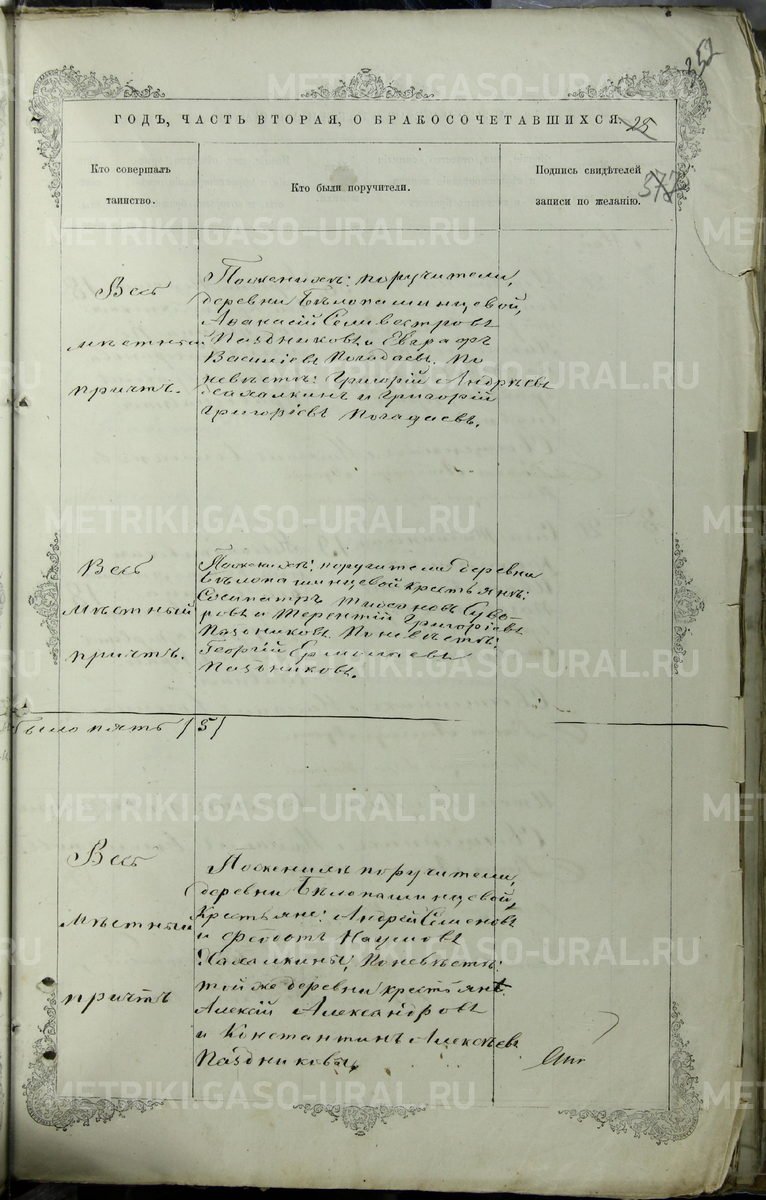 352
ГОДЪ, ЧАСТЬ ВТОРАЯ, О БРАКОСОЧЕТАВШИХСЯ.
25
377
Кто совершалъ
таинство.
Кто были поручители.
Подпись свидѣтелей
записи по желанію.
Весь
мѣстный
причтъ.
По женихѣ: поручители,
деревни Бѣлопашинцевой,
Аѳанасій Селивестровъ
Паздниковъ и Евграфъ
Василіевъ Погадаевъ. По
невѣстѣ: Григорій Андрѣевъ
Хахалкинъ и Григорій
Григоріевъ Погадаевъ.
Весь
мѣстный
причтъ.
По женихѣ: поручители деревни
Бѣлопашинцевой крестьянѣ:
Сосипатръ
ровъ и Терентій Григоріевъ
Паздниковъ. По невѣстѣ:
Георгій Ермолаевъ
Паздниковъ.
было пять /5/
Весь
мѣстный
причтъ
По женихѣ поручители,
деревни Бѣлопашинцевой,
крестьяне: Андрей Семеновъ
и Федотъ Наумовъ
Хахалкины; По невѣстѣ:
той же деревни крестьянѣ
Алексій Александровъ
и Константинъ Алексѣевъ
Паздниковы.
METRIKI.GASO-URAL.RU